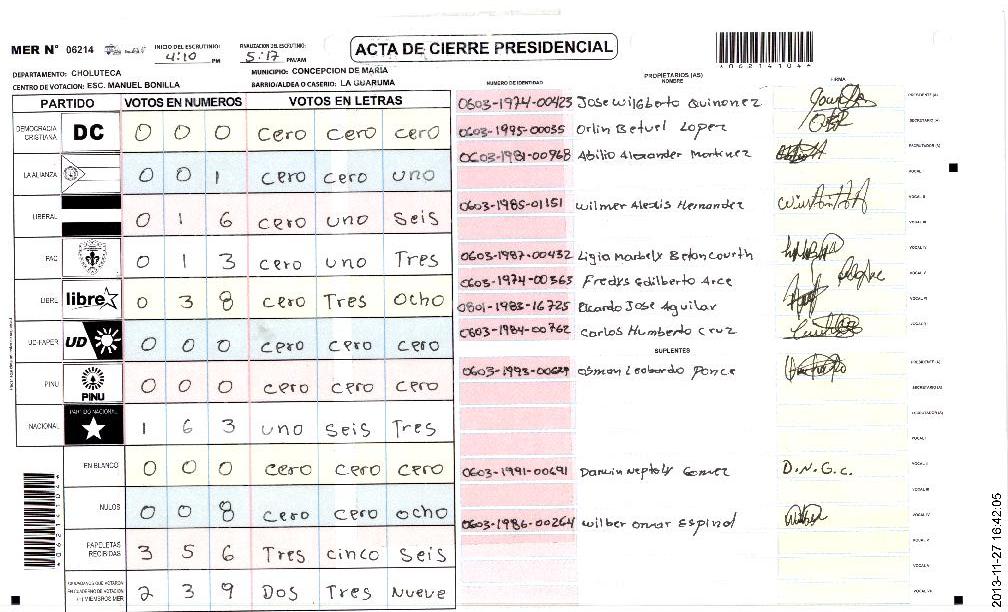 MER N° 06214
INICIO DEL ESCRUTINIO: 4:10 PM
FINALIZACION DEL ESCRUTINIO: 5:17 PM/AM
ACTA DE CIERRE PRESIDENCIAL
DEPARTAMENTO: CHOLUTECA
MUNICIPIO: CONCEPCION DE MARIA
CENTRO DE VOTACION: ESC. MANUEL BONILLA
BARRIO/ALDEA O CASERIO: LA GUARUMA
PARTIDO VOTOS EN NUMEROS VOTOS EN LETRAS
DEMOCRACIA CRISTIANA DC 0 0 0 cero cero cero
LA ALIANZA 0 0 1 cero cero uno
LIBERAL 0 1 6 cero uno seis
PAC 0 1 3 cero uno Tres
LIBRE libre 0 3 8 cero Tres ocho
UD-FAPER UD 0 0 0 cero cero cero
PINU PINU 0 0 0 cero cero cero
NACIONAL PARTIDO NACIONAL 1 6 3 uno seis Tres
EN BLANCO 0 0 0 cero cero cero
NULOS 0 0 8 cero cero ocho
PAPELETAS RECIBIDAS 3 5 6 Tres cinco seis
CIUDADANOS QUE VOTARON EN CUADERNO DE VOTACION (+) MIEMBROS MER 2 3 9 Dos Tres Nueve
NUMERO DE IDENTIDAD PROPIETARIOS (AS) NOMBRE FIRMA
0603-1974-00423 Jose Wilgberto Quinonez PRESIDENTE (A)
0603-1995-00035 Orlin Betuel Lopez SECRETARIO (A)
0603-1981-00968 Abilio Alexander Martinez ESCRUTADOR (A)
VOCAL I
0603-1985-01151 Wilmer Alexis Hernandez VOCAL II
VOCAL III
0603-1987-00432 Ligia Marbely Betancourth VOCAL IV
0603-1974-00365 Fredys Edilberto Arce VOCAL V
0801-1983-16725 Ricardo Jose Aguilar VOCAL VI
0603-1984-00762 Carlos Humberto Cruz
SUPLENTES
0603-1993-00624 Osman Leobardo Ponce PRESIDENTE (A)
SECRETARIO (A)
ESCRUTADOR (A)
VOCAL I
0603-1991-00691 Darwin Neptaly Gomez D.N.G.C. VOCAL II
VOCAL III
0603-1986-00264 Wilber Omar Espinal VOCAL IV
VOCAL V
VOCAL VI
VOCAL VII
*062141044*
2013-11-27 16:42:05